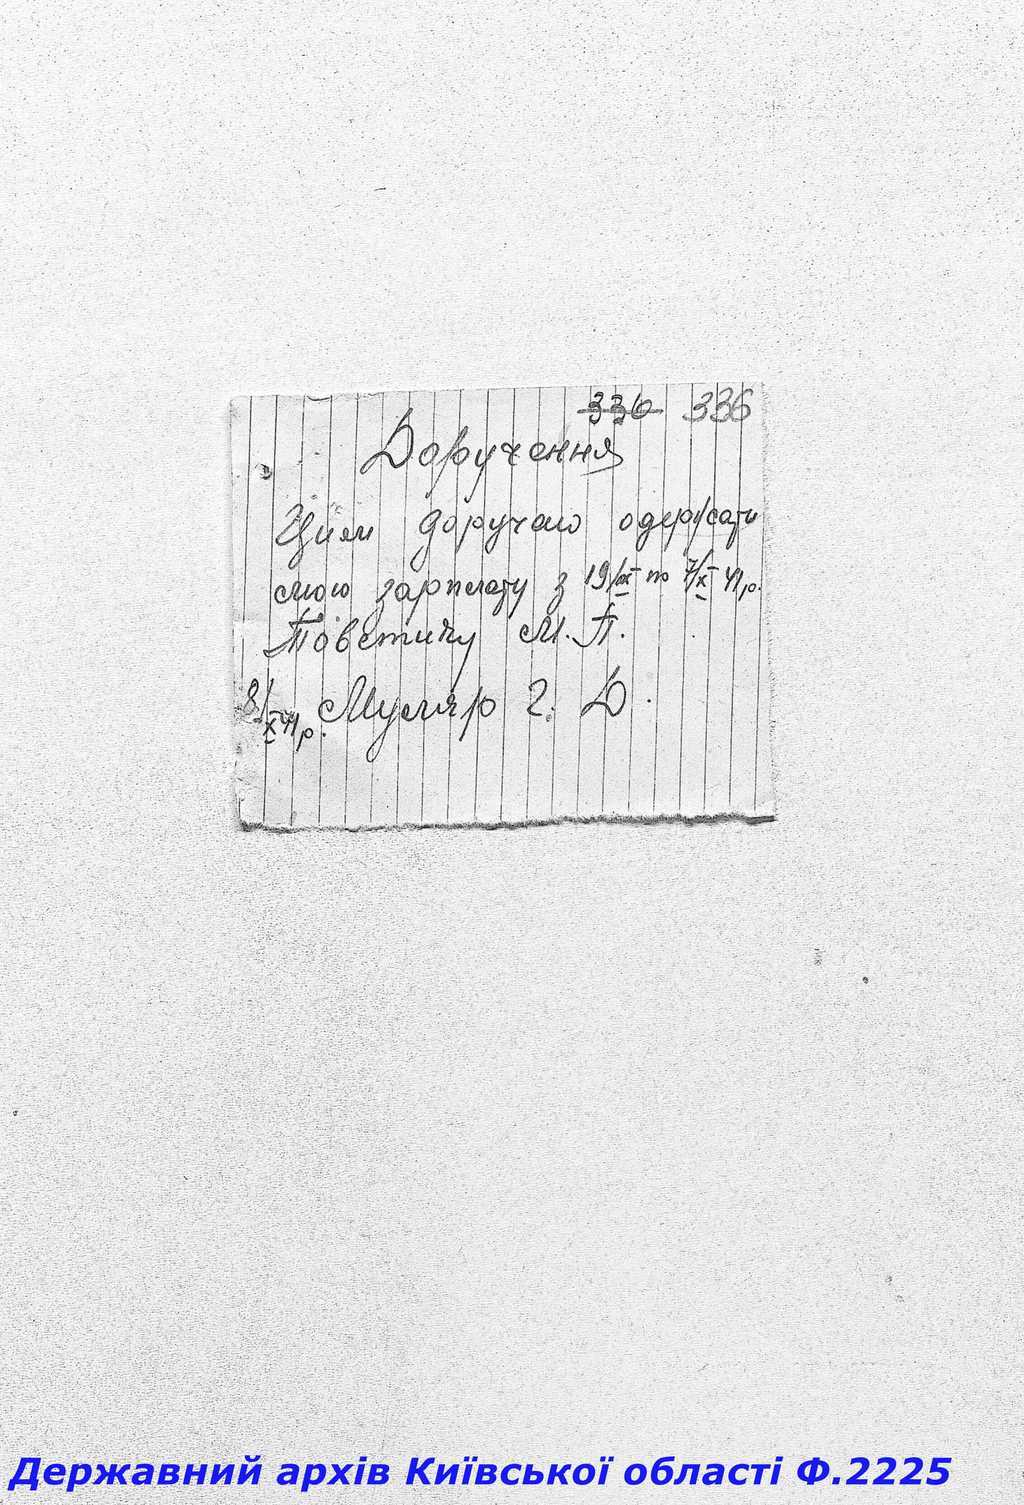 336 336
Доручення
Цим доручаю одержати
мою зарплату з 19/IX по 7/X 41 р.
Товстику М. П.
8/X 41 р. Муляр Г. Д.
Державний архів Київської області Ф.2225